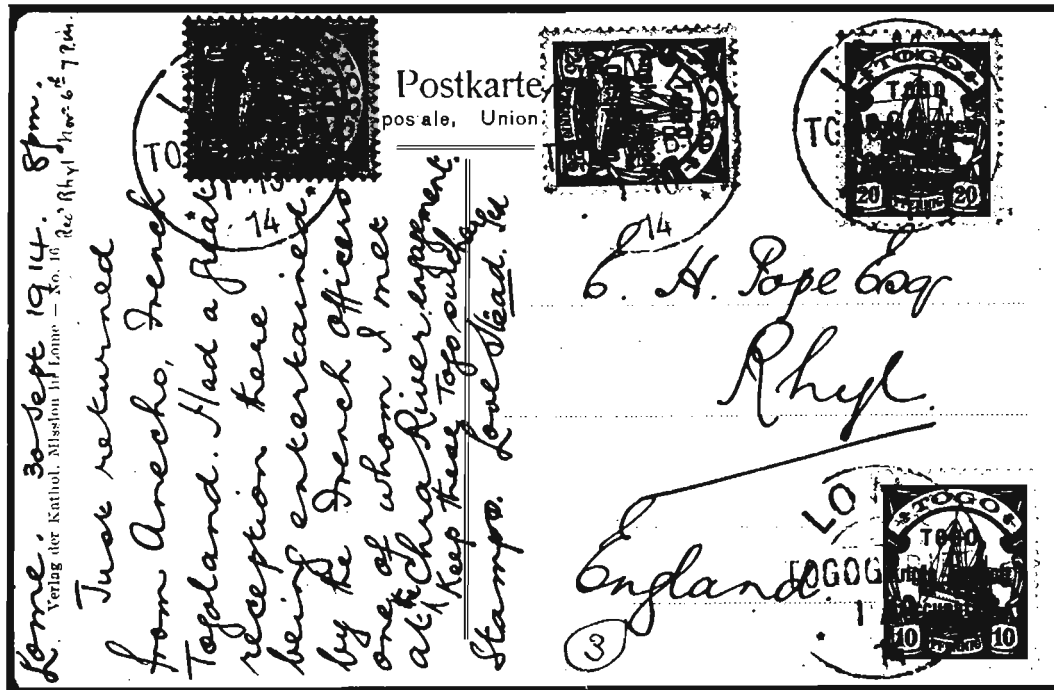 Lome. 30 Sept 1914. 8pm.
Verlag der Kathol. Mission in Lome – No. 16
Rec'd Rhyl Nov. 6th 7 p.m.
Just returned
from Anecho, French
Togoland. Had a great
reception there
being entertained
by the French officers
one of whom I met
at the Chra River engagement.
Keep these Togo
stamps. Love
Postkarte
Union.
TOGO
14
TOGO
14
TOGO
Togo
20 PFENNIG 20
E. H. Pope Esq
Rhyl.
England.
3
LO
TOGOG
TOGO
TOGO
10 PFENNIG 10